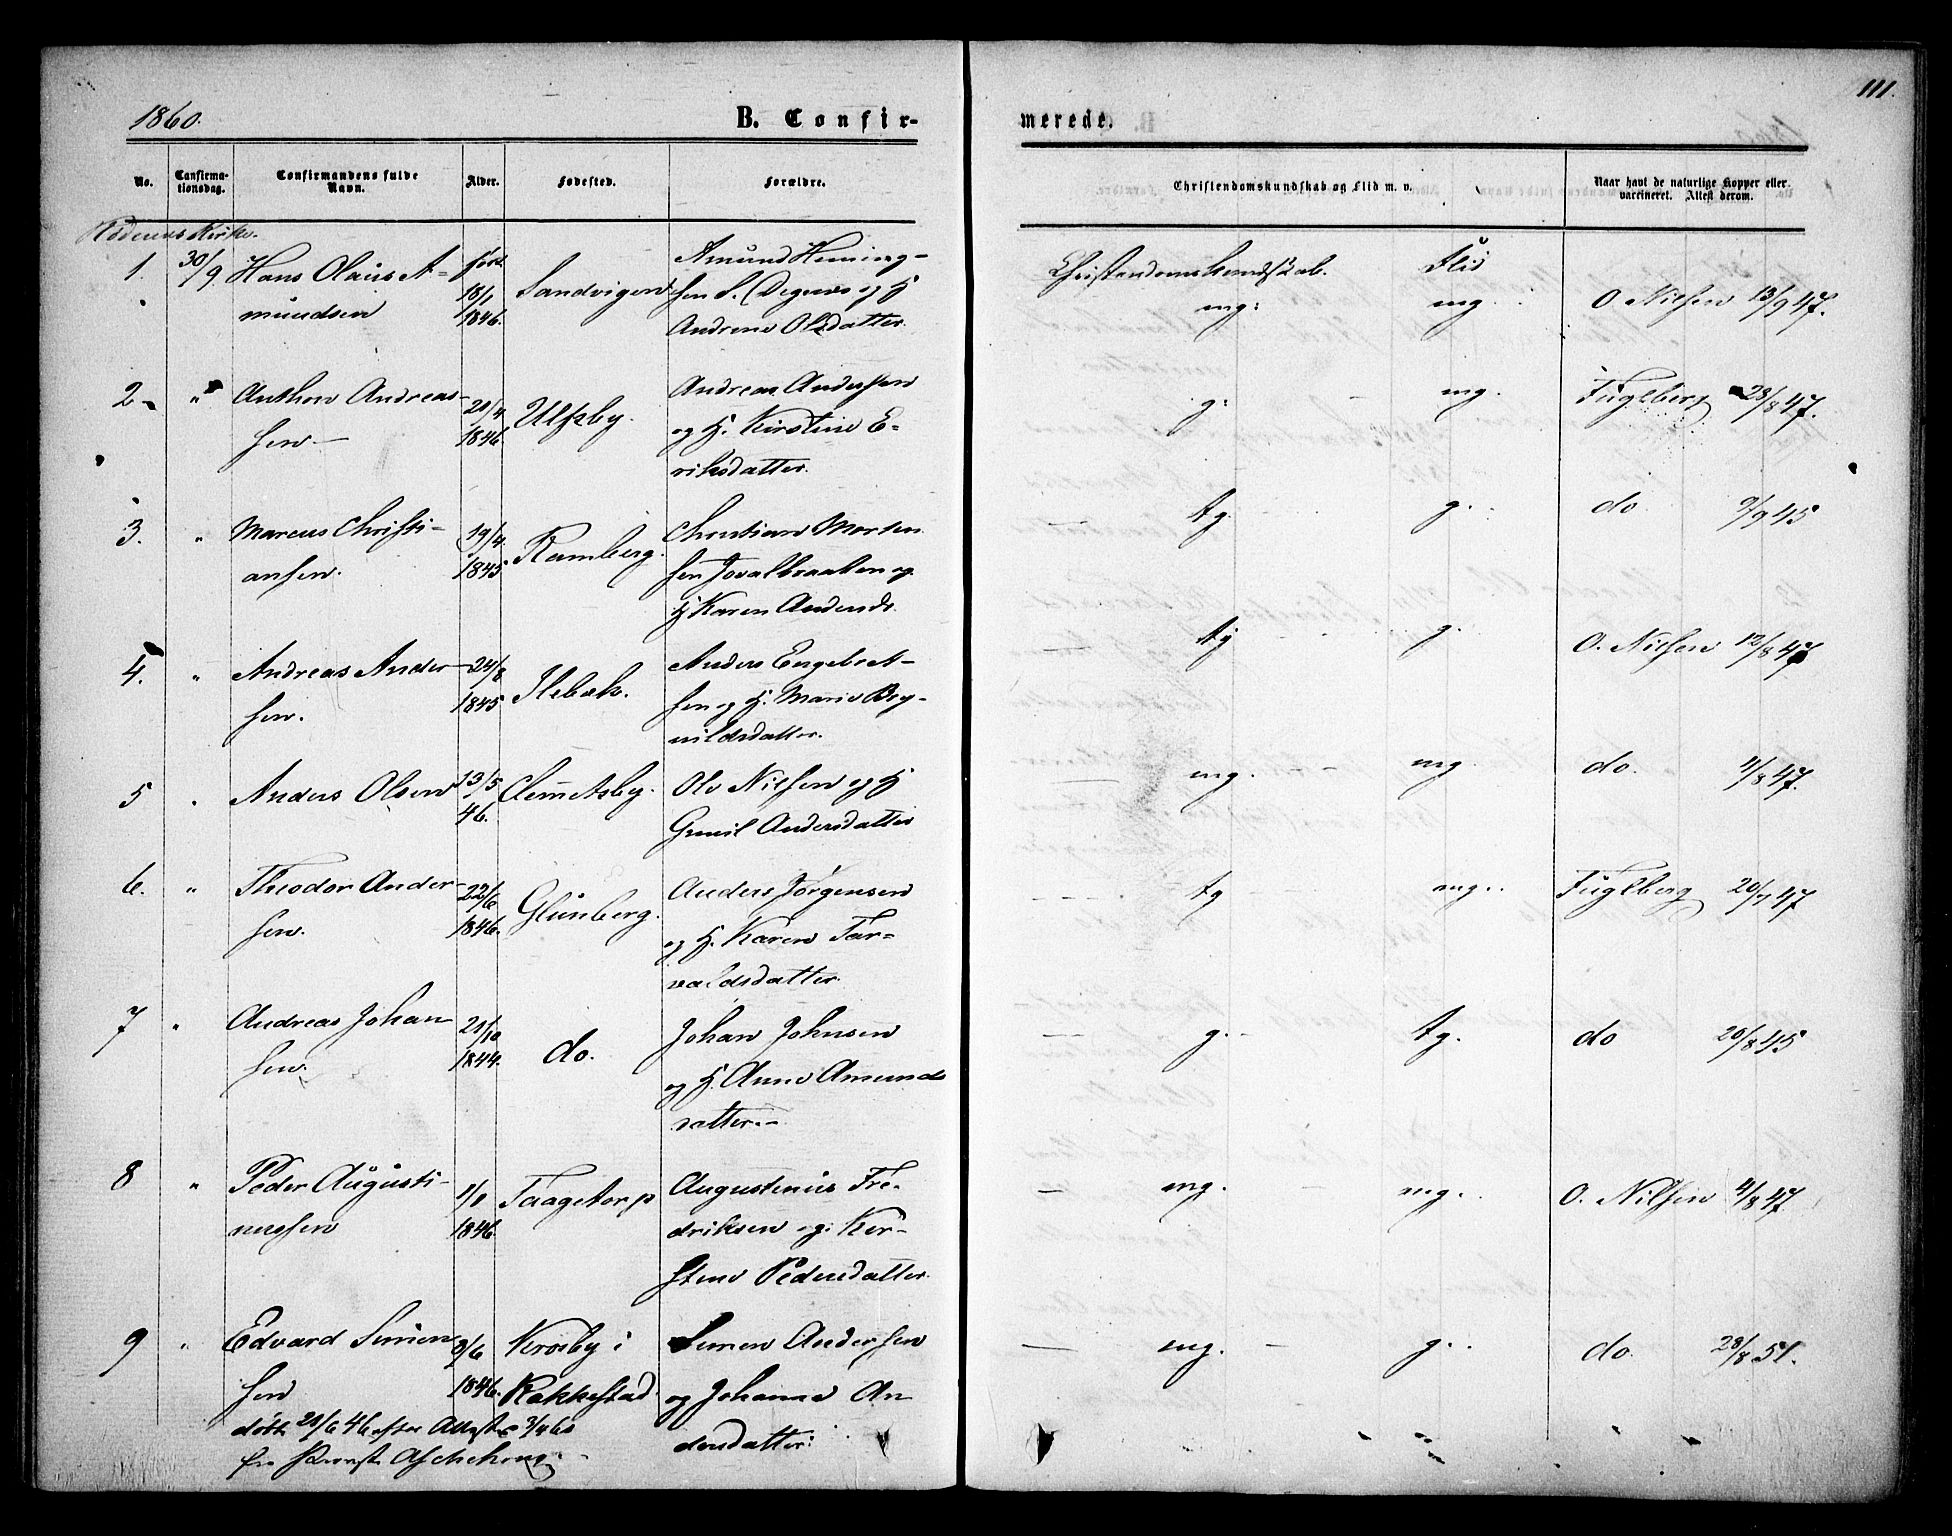 1860.
B. Confir-
merede.
111.
No.
Confirma-
tionsdag.
Confirmandens fulde
Navn.
Alder.
Fødested.
Forældre.
Christendomskundskab og Flid m. v.
Naar havt de naturlige Kopper eller
vaccineret. Attest derom.
Kirke.
1. 30/9 Hans Olaus A-
mundsen
født
18/1
1846.
Sandvigen
Amund Heming-
sen S. og H
Andrene Olsdatter.
Christendomskundskab. Flid
mg. mg. O. Nilsen 13/9 47.
2. " Anthon Andreas-
sen.
1846.
Ulfsby.
Andreas Andersen
og H. Kirstine E-
riksdatter.
g. mg. Fuglberg 28/8 47.
3. " Marcus Christi-
ansen.
19/4
1845
Ramberg.
Christian Morten
sen og
H Karen Andersdr.
tg. g. do 9/9 45
4. " Andreas Ander-
sen.
24/8
1845
Ilebæk.
Anders Engebret-
sen og H. Marie Bry-
nildsdatter.
tg g. O. Nilsen 12/8 47
5 " Anders Olsen
13/5
46.
Clemetsby.
Ole Nilsen og H
Gunil Andersdatter
mg. mg. do. 4/8 47.
6. " Theodor Ander-
sen.
22/6
1846.
Glünberg.
Anders Jørgensen
og H. Karen Tor-
valdsdatter.
tg mg. Fuglberg 20/7 47
7 " Andreas Johan-
sen.
21/10
1844.
do.
Johan Johnsen
og H. Anne Amunds
datter.
g. tg. do 20/8 45
8 " Peder Augusti-
nussen
1/1
1846.
Taagetorp
Augustinius Fre-
driksen og Kir-
stine Pedersdatter.
mg. mg. O. Nilsen 4/8 47
9 " Edvard Simen
sen
9/6
1846.
Krosby i
Rakkestad.
Simen Andersen
og Johanne An-
dersdatter.
mg. g. do. 28/8 51.
døbt 21/6 46 efter Attest 3/4 60
fra Provst Aschehoug.